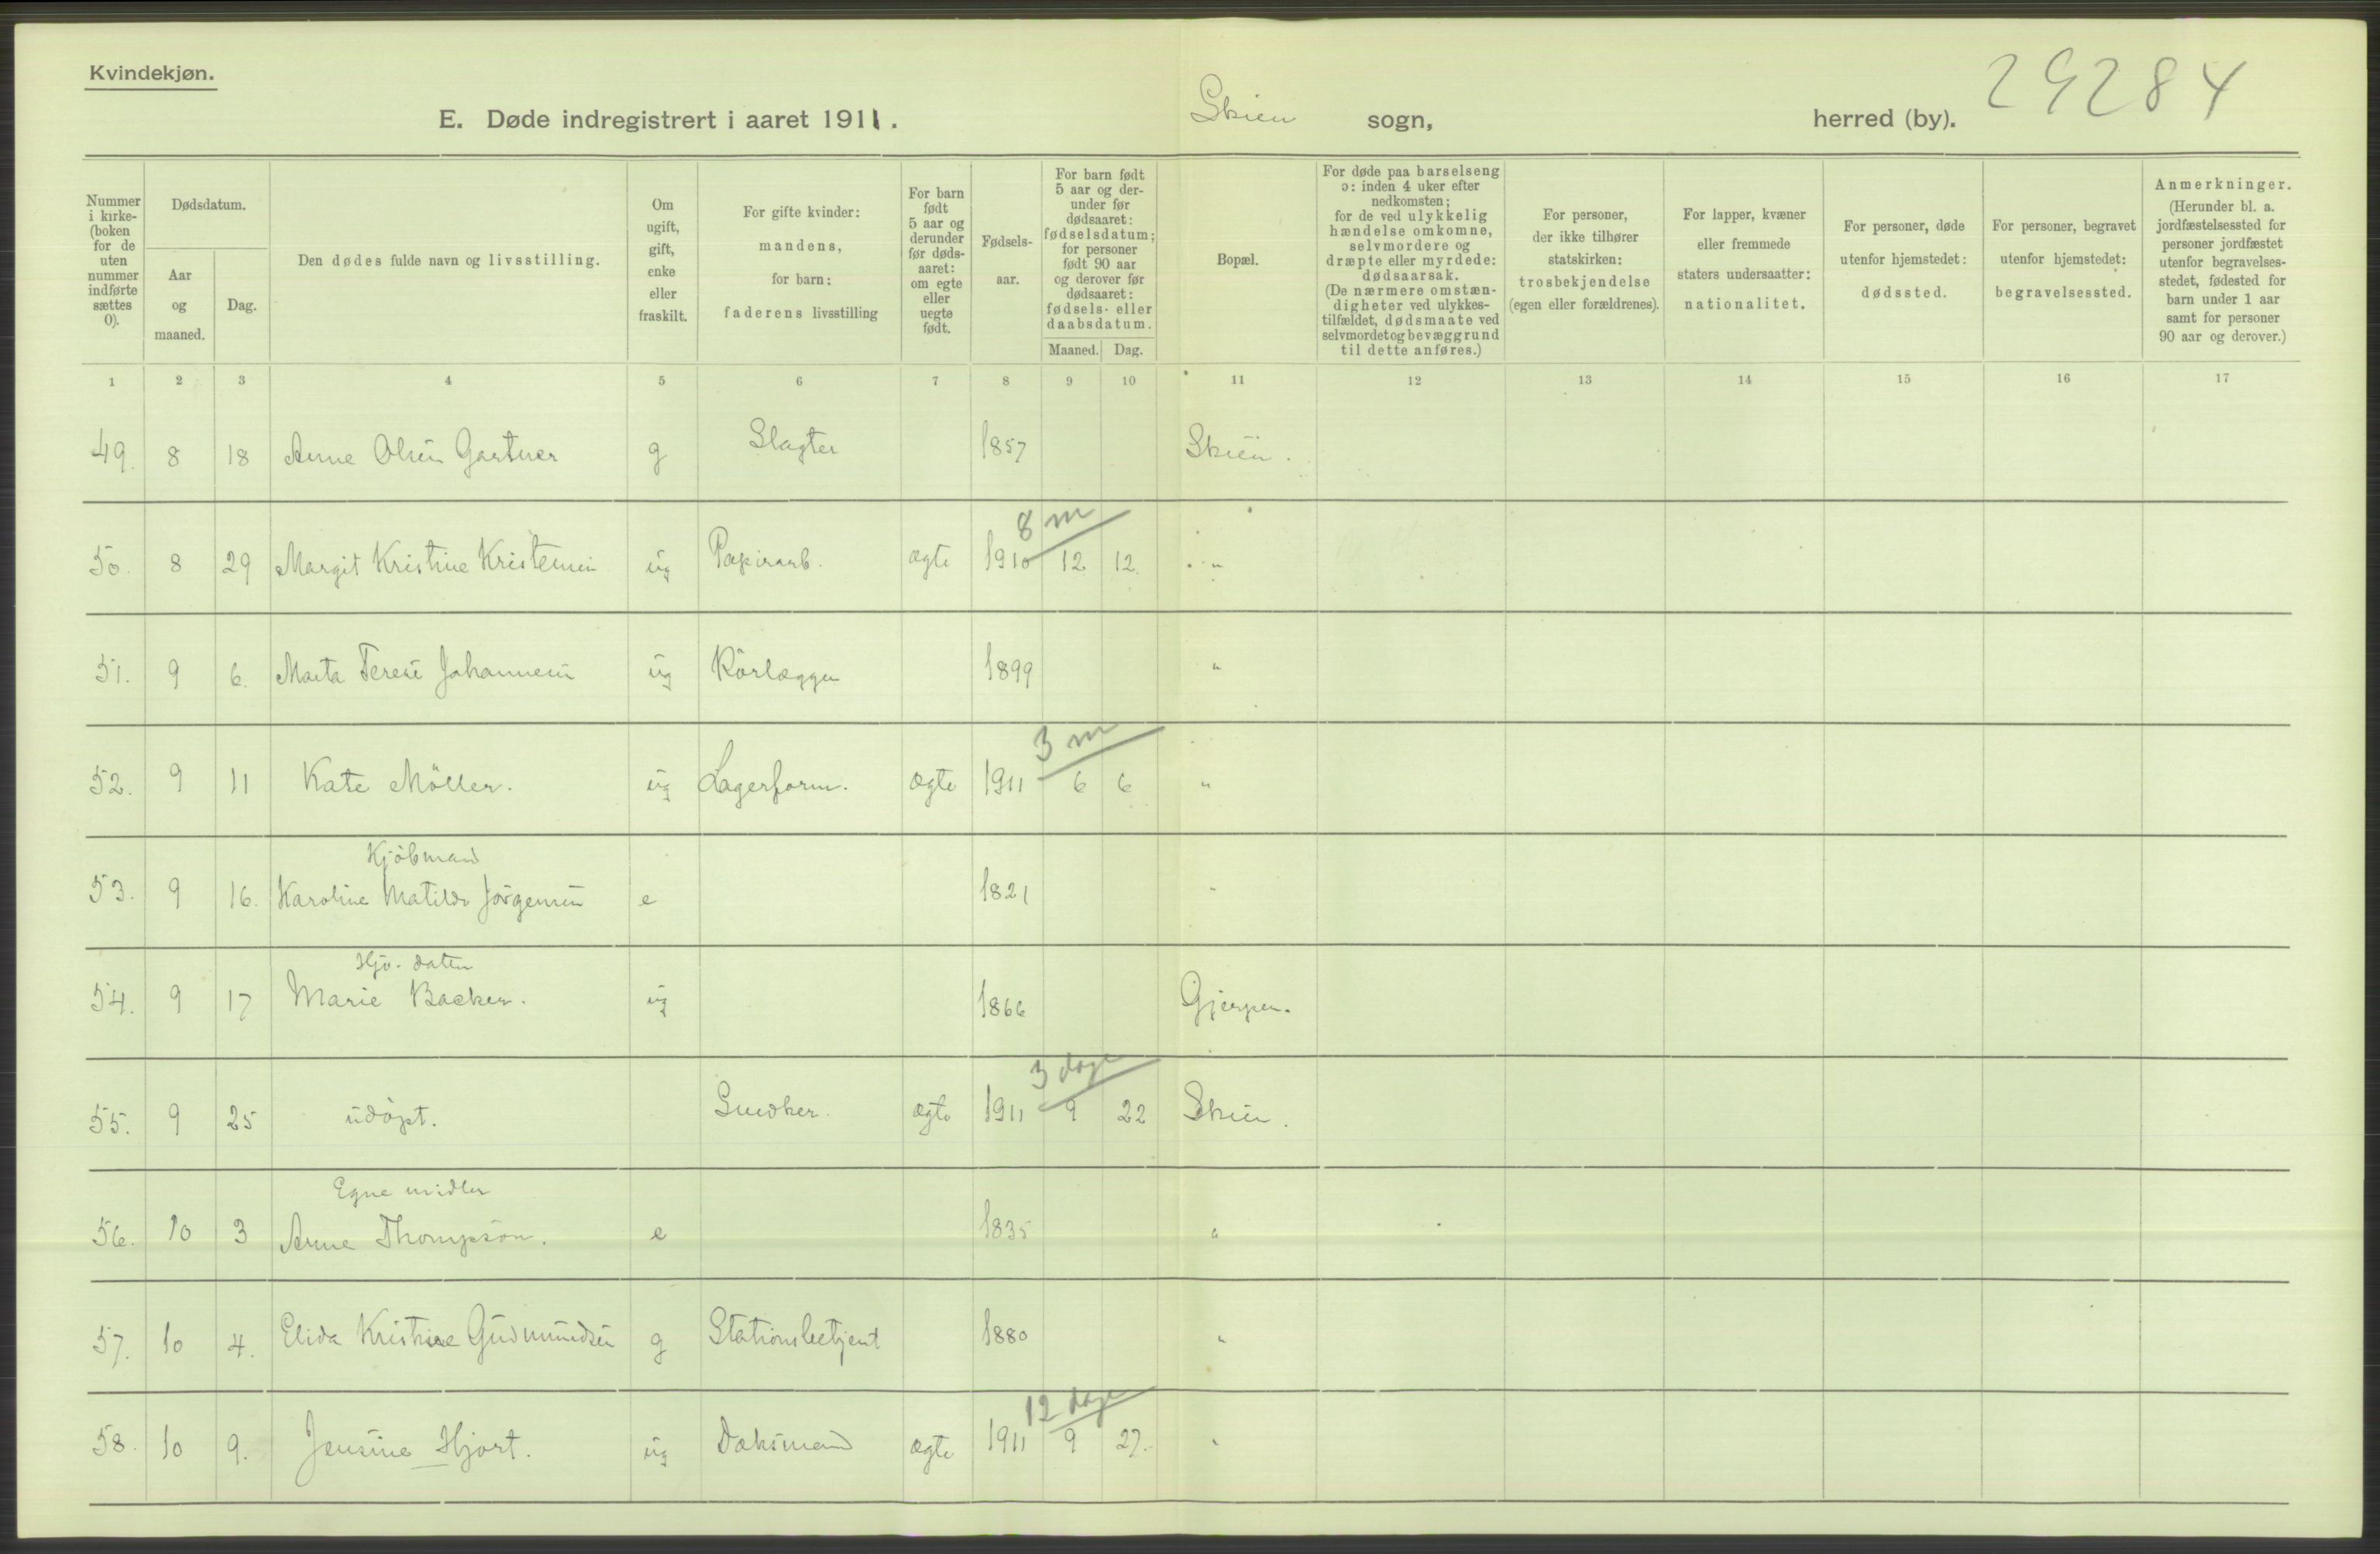 Kvindekjøn.
E. Døde indregistrert i aaret 1911. Skien sogn, herred (by). 29284
Nummer i kirke-(boken for de uten nummer indførte sættes 0).
Dødsdatum.
Aar og maaned.
Dag.
Den dødes fulde navn og livsstilling.
Om ugift, gift, enke eller fraskilt.
For gifte kvinder: mandens, for barn: faderens livsstilling
For barn født 5 aar og derunder før døds-aaret: om egte eller uegte født.
Fødsels-aar.
For barn født 5 aar og der-under før dødsaaret: fødselsdatum; for personer født 90 aar og derover før dødsaaret: fødsels- eller daabsdatum.
Maaned. Dag.
Bopæl.
For døde paa barselseng ɔ: inden 4 uker efter nedkomsten; for de ved ulykkelig hændelse omkomne, selvmordere og dræpte eller myrdede: dødsaarsak. (De nærmere omstæn-digheter ved ulykkes-tilfældet, dødsmaate ved selvmordet og bevæggrund til dette anføres.)
For personer, der ikke tilhører statskirken: trosbekjendelse (egen eller forældrenes).
For lapper, kvæner eller fremmede staters undersaatter: nationalitet.
For personer, døde utenfor hjemstedet: dødssted.
For personer, begravet utenfor hjemstedet: begravelsessted.
Anmerkninger. (Herunder bl. a. jordfæstelsessted for personer jordfæstet utenfor begravelses-stedet, fødested for barn under 1 aar samt for personer 90 aar og derover.)
1 2 3 4 5 6 7 8 9 10 11 12 13 14 15 16 17
49. 8 18 Anne Olsen Gartner g Slagter 1857 Skien.
8 m
50. 8 29 Margit Kristine Kristensen ug Papirarb. ægte 1910 12 12 "
51. 9 6. Marta Terese Johannesen ug Rörlægger 1899 "
3 m
52. 9 11 Kate Möller. ug Lagerform. ægte 1911 6 6 "
Kjöbmand
53. 9 16. Karoline Matilde Jörgensen e 1821 "
Hjv. datter
54. 9 17 Marie Backer. ug 1866 Gjerpen.
3 dage
55. 9 25 udöpt. Snedker. ægte 1911 9 22 Skien.
Egne midler
56. 10 3 Anne Thompson. e 1835 "
57. 10 4. Elida Kristine Gudmundsen g Stationsbetjent 1880 "
12 dage
58. 10 9. Jensine Hjort. ug Doksmand ægte 1911 9 27. "